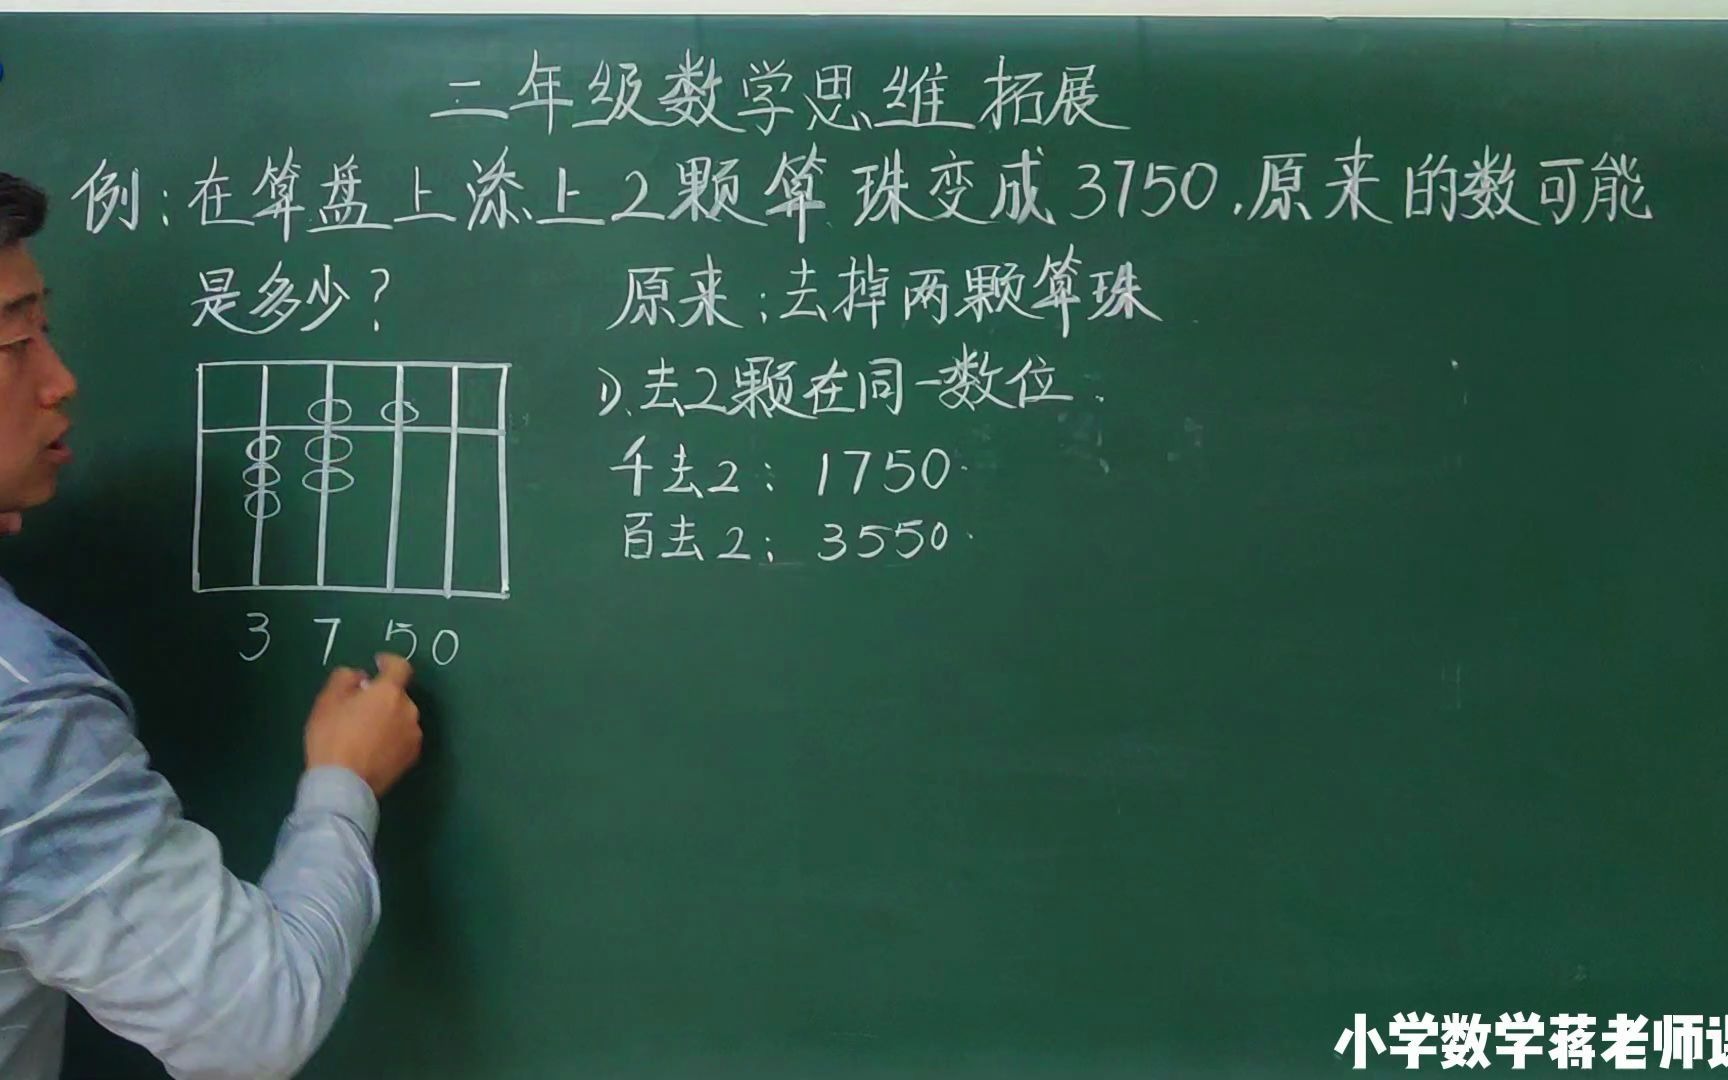 二年级数学思维拓展
例:在算盘上添上2颗算珠变成3750.原来的数可能
是多少?
原来:去掉两颗算珠
1)、去2颗在同一数位.
千去2: 1750.
百去2: 3550.
3 7 5 0
小学数学蒋老师